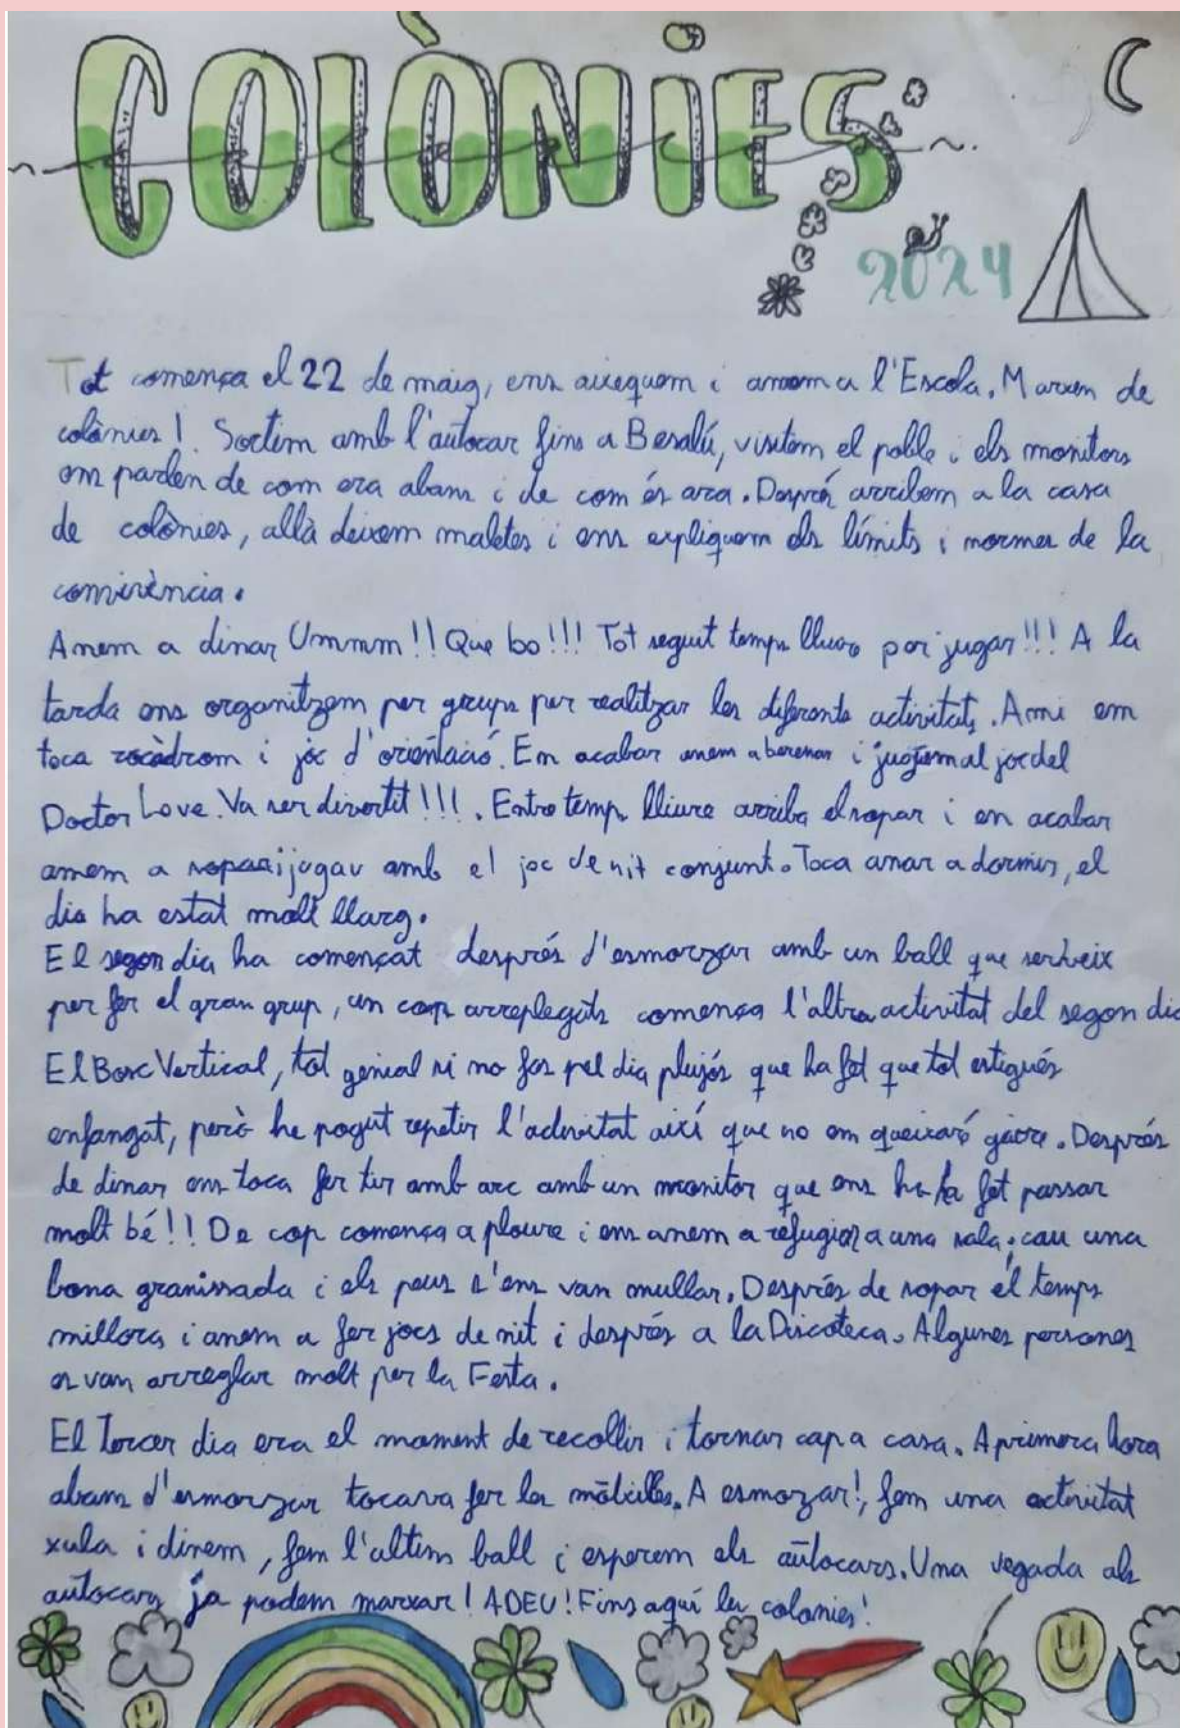 COLÒNiES
2024
Tot comença el 22 de maig, ens aixequem i anem a l'Escola. Marxem de
colònies! Sortim amb l'autocar fins a Besalú, visitem el poble i els monitors
ens parlen de com era abans i de com és ara. Després arribem a la casa
de colònies, allà deixem maletes i ens expliquem els límits i normes de la
convivència.
Anem a dinar Ummm!! Que bo!!! Tot seguit temps lliure per jugar!!! A la
tarda ens organitzem per grups per realitzar les diferents activitats. A mi em
toca rocòdrom i joc d'orientació. En acabar anem a berenar i juguem al joc del
Doctor Love. Va ser divertit!!!. Entre temps lliure arriba el sopar i en acabar
anem a sopar i jugar amb el joc de nit conjunt. Toca anar a dormir, el
dia ha estat molt llarg.
El segon dia ha començat després d'esmorzar amb un ball que serveix
per fer el gran grup, un cop arreplegats comença l'altra activitat del segon dia
El Bosc Vertical, tot genial si no fos pel dia plujós que ha fet que tot estigués
enfangat, però he pogut repetir l'activitat així que no em queixaré gaire. Després
de dinar ens toca fer tir amb arc amb un monitor que ens ho ha fet passar
molt bé!! De cop comença a ploure i ens anem a refugiar a una sala; cau una
bona granissada i els peus s'ens van mullar. Després de sopar el temps
millora i anem a fer jocs de nit i després a la Discoteca. Algunes persones
es van arreglar molt per la Festa.
El Tercer dia era el moment de recollir i tornar cap a casa. A primera hora
abans d'esmorzar tocava fer les motxilles. A esmozar!, fem una activitat
xula i dinem, fem l'ultim ball i esperem els autocars. Una vegada als
autocars ja podem marxar! ADEU! Fins aquí les colonies!